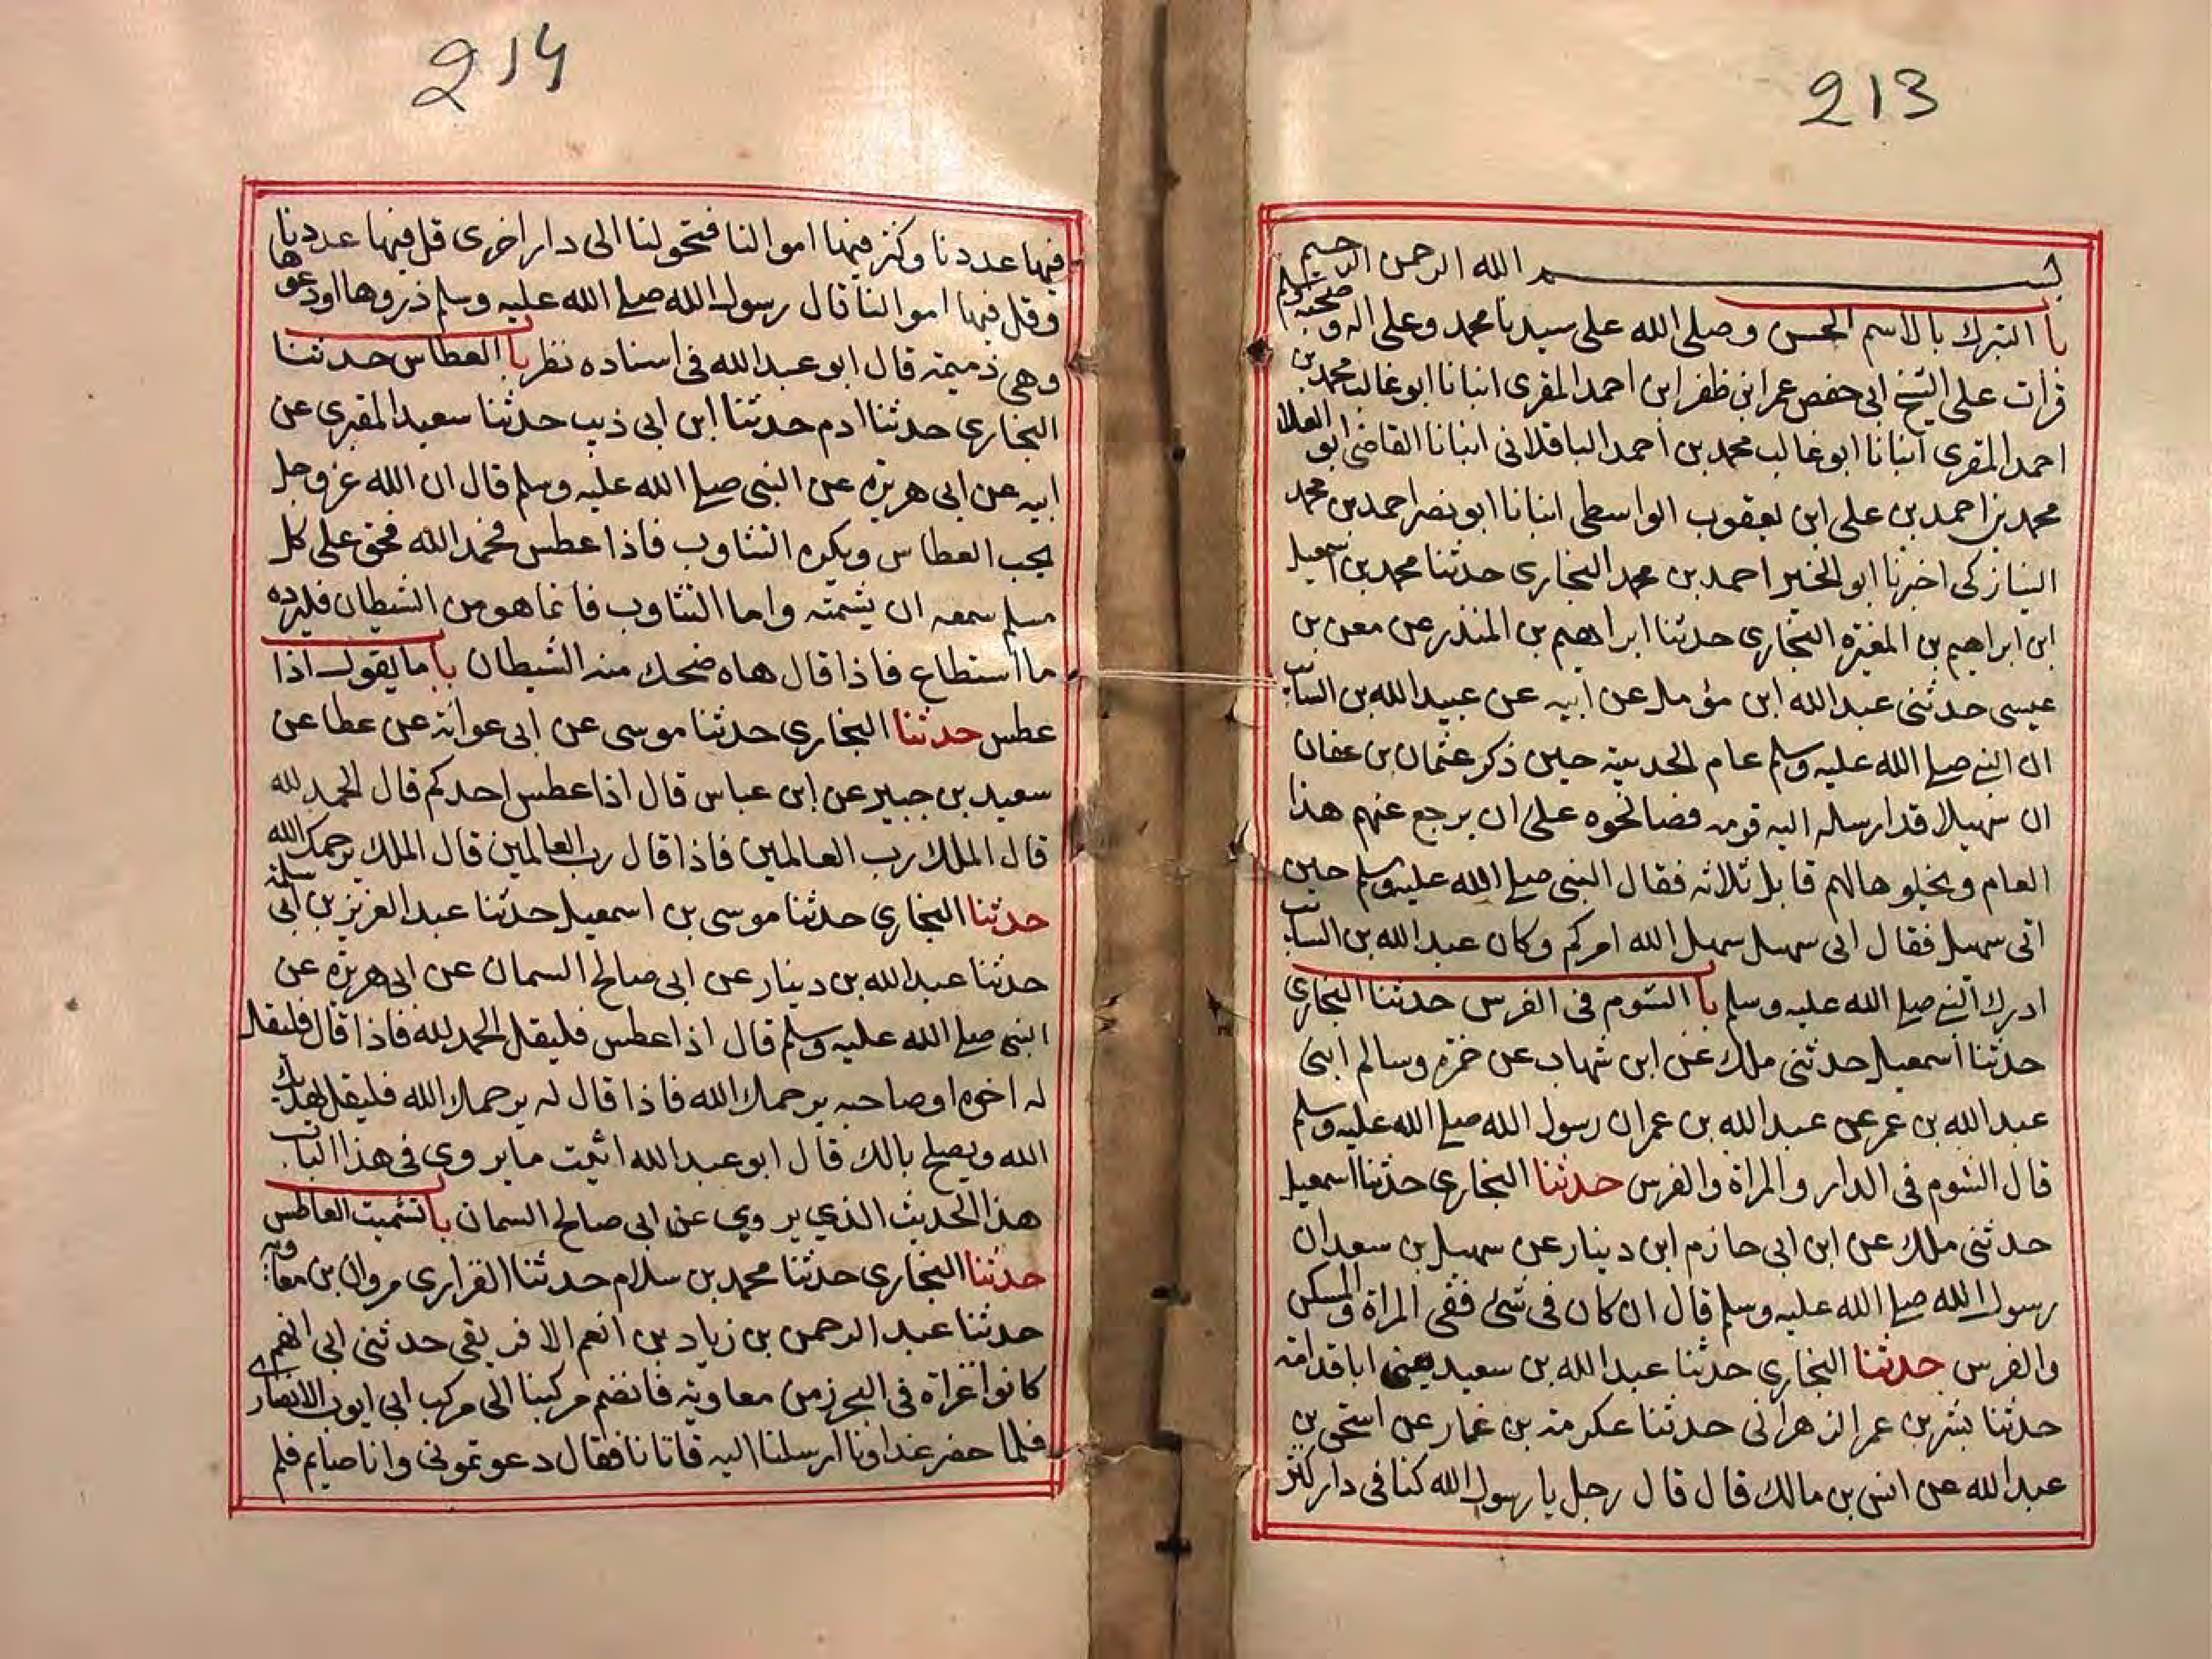 213
بسم الله الرحمن الرحيم
با التبرك بالاسم الحسن وصلى الله على سيدنا محمد وعلى اله وصحبه وسلم
قرات على الشيخ ابى حفص عمر ابن ظفر ابن احمد المقرى انبانا ابو غالب محمد بن
احمد المقرى انبانا ابو غالب محمد بن احمد الباقلانى انبانا القاضى ابو العلا
محمد بن احمد بن على ابن يعقوب الواسطى انبانا ابو نصر احمد بن محمد
النيازكى اخبرنا ابو الخير احمد بن محمد البخارى حدثنا محمد بن اسمعيل
ابن ابراهيم بن المغيرة البخارى حدثنا ابراهيم بن المنذر عن معن بن
عيسى حدثنى عبد الله ابن مؤمل عن ابيه عن عبيد الله بن السايب
ان النبى صلى الله عليه وسلم عام الحديبية حين ذكر عثمان بن عفان
ان سهيلا قد ارسله اليه قومه فصالحوه على ان يرجع عنهم هذا
العام ويخلوها لهم قابل ثلاثه فقال النبى صلى الله عليه وسلم حين
اتى سهيل فقال اتى سهيل سهل الله امركم وكان عبد الله بن السايب
ادرك النبى صلى الله عليه وسلم با الشوم فى الفرس حدثنا البخارى
حدثنا اسمعيل حدثنى ملك عن ابن شهاب عن حمزه وسالم ابنى
عبد الله بن عمر عن عبد الله بن عمر ان رسول الله صلى الله عليه وسلم
قال الشوم فى الدار والمراة والفرس حدثنا البخارى حدثنا اسمعيل
حدثنى ملك عن ابن ابى حازم ابن دينار عن سهيل بن سعد ان
رسول الله صلى الله عليه وسلم قال ان كان فى شئ ففى المراة والمسكن
والفرس حدثنا البخارى حدثنا عبد الله بن سعيد يعنى ابا قدامه
حدثنا بشر بن عمر الزهرانى حدثنا عكرمة بن عمار عن اسحق بن
عبد الله عن انس بن مالك قال قال رجل يا رسول الله كنا فى دار كثر
214
فيها عددنا وكثر فيها اموالنا فتحولنا الى دار اخرى قل فيها عددنا
وقل فيها اموالنا قال رسول الله صلى الله عليه وسلم ذروها او دعوها
وهى ذميمة قال ابو عبد الله فى اسناده نظر با العطاس حدثنا
البخارى حدثنا ادم حدثنا ابن ابى ذيب حدثنا سعيد المقبرى عن
ابيه عن ابى هريره عن النبى صلى الله عليه وسلم قال ان الله عز وجل
يحب العطاس ويكره التثاوب فاذا عطس فحمد الله فحق على كل
مسلم سمعه ان يشمته واما التثاوب فانما هو من الشيطان فليرده
ما استطاع فاذا قال هاه ضحك منه الشيطان با ما يقول اذا
عطس حدثنا البخارى حدثنا موسى عن ابى عوانة عن عطا عن
سعيد بن جبير عن ابن عباس قال اذا عطس احدكم قال الحمد لله
قال الملك رب العالمين فاذا قال رب العالمين قال الملك يرحمك الله
حدثنا البخارى حدثنا موسى بن اسمعيل حدثنا عبد العزيز بن ابى سلمة
حدثنا عبد الله بن دينار عن ابى صالح السمان عن ابى هريره عن
النبى صلى الله عليه وسلم قال اذا عطس فليقل الحمد لله فاذا قال فليقل
له اخوه او صاحبه يرحمك الله فاذا قال له يرحمك الله فليقل يهديك
الله ويصلح بالك قال ابو عبد الله اثبت ما يروى فى هذا الباب
هذا الحديث الذي يروي عن ابى صالح السمان با تشميت العاطس
حدثنا البخارى حدثنا محمد بن سلام حدثنا الفزارى مروان بن معاوية
حدثنا عبد الرحمن بن زياد بن انعم الافريقى حدثنى ابى انهم
كانوا غزاة فى البحر زمن معاويه فانضم مركبنا الى مركب ابى ايوب الانصارى
فلما حضر غداونا ارسلنا اليه فاتانا فقال دعوتمونى وانا صايم فلم